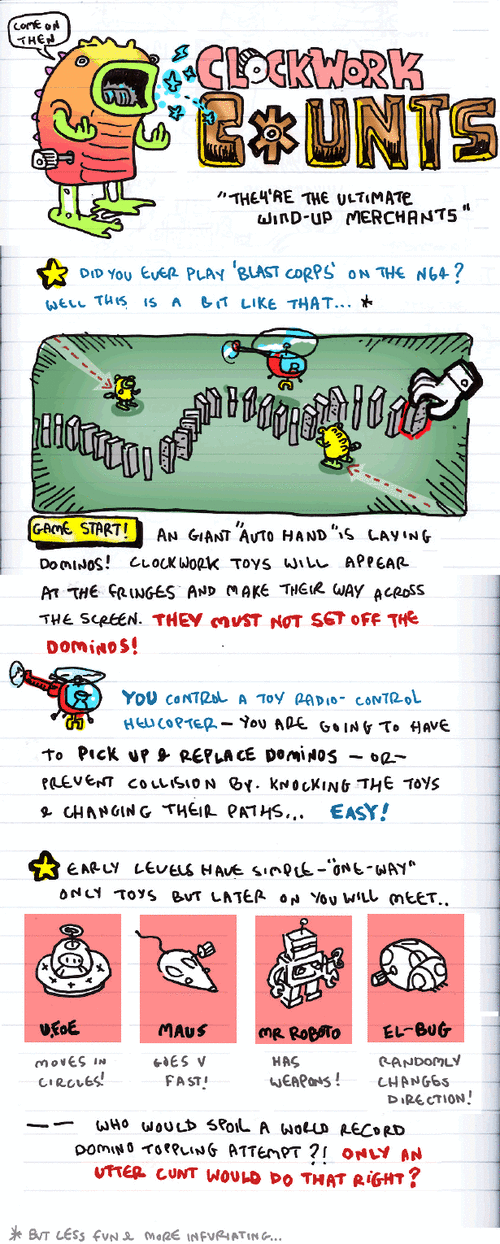 COME ON
THEN
CLOCKWORK
COUNTS
"THEY'RE THE ULTIMATE
WIND-UP MERCHANTS"
DID YOU EVER PLAY 'BLAST CORPS' ON THE N64?
WELL THIS IS A BIT LIKE THAT... *
GAME START! AN GIANT "AUTO HAND" IS LAYING
DOMINOS! CLOCKWORK TOYS WILL APPEAR
AT THE FRINGES AND MAKE THEIR WAY ACROSS
THE SCREEN. THEY MUST NOT SET OFF THE
DOMINOS!
YOU CONTROL A TOY RADIO-CONTROL
HELICOPTER — YOU ARE GOING TO HAVE
TO PICK UP & REPLACE DOMINOS — OR —
PREVENT COLLISION BY. KNOCKING THE TOYS
& CHANGING THEIR PATHS... EASY!
EARLY LEVELS HAVE SIMPLE - "ONE-WAY"
ONLY TOYS BUT LATER ON YOU WILL MEET..
U.FOE
MAUS
MR ROBOTO
EL-BUG
MOVES IN
CIRCLES!
GOES V
FAST!
HAS
WEAPONS!
RANDOMLY
CHANGES
DIRECTION!
—— WHO WOULD SPOIL A WORLD RECORD
DOMINO TOPPLING ATTEMPT?! ONLY AN
UTTER CUNT WOULD DO THAT RIGHT?
* BUT LESS FUN & MORE INFURIATING...